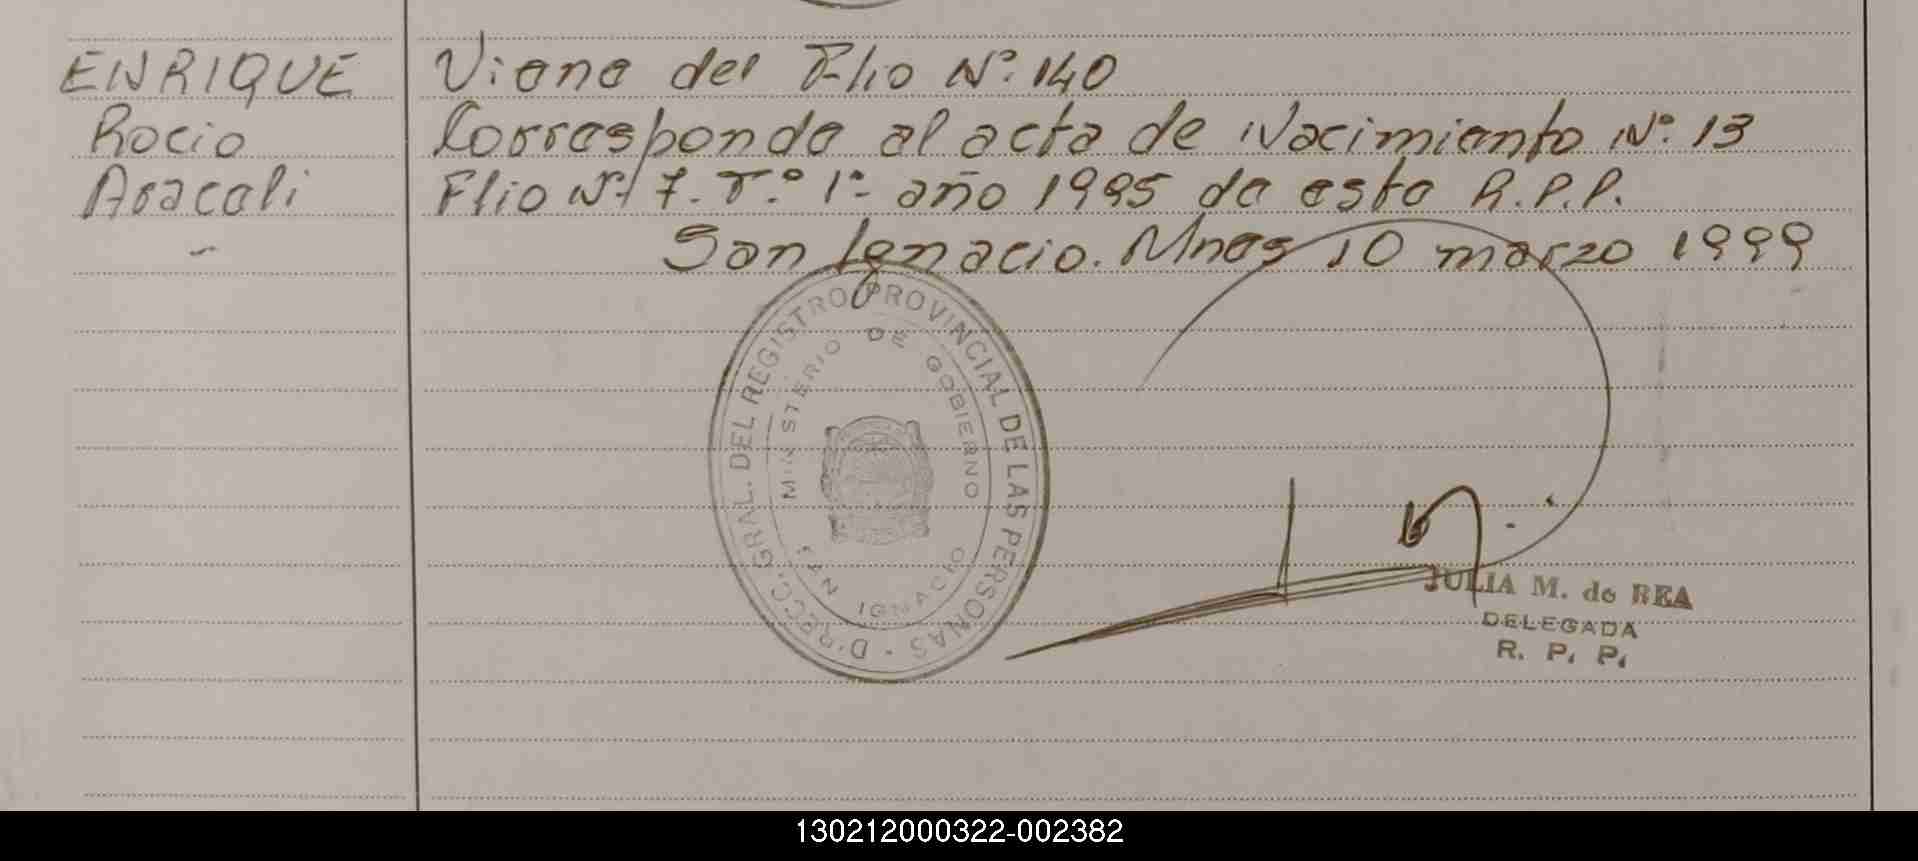 ENRIQUE
Rocio
Araceli
Viene del Flio Nº 140
Corresponde al acta de Nacimiento Nº 13
Flio Nº 7. Tº 1º año 1995 de este R.P.P.
San Ignacio. Mnes 10 marzo 1999
DIRECC. GRAL. DEL REGISTRO PROVINCIAL DE LAS PERSONAS
MINISTERIO DE GOBIERNO
SAN IGNACIO
JULIA M. de REA
DELEGADA
R. P. P.
130212000322-002382